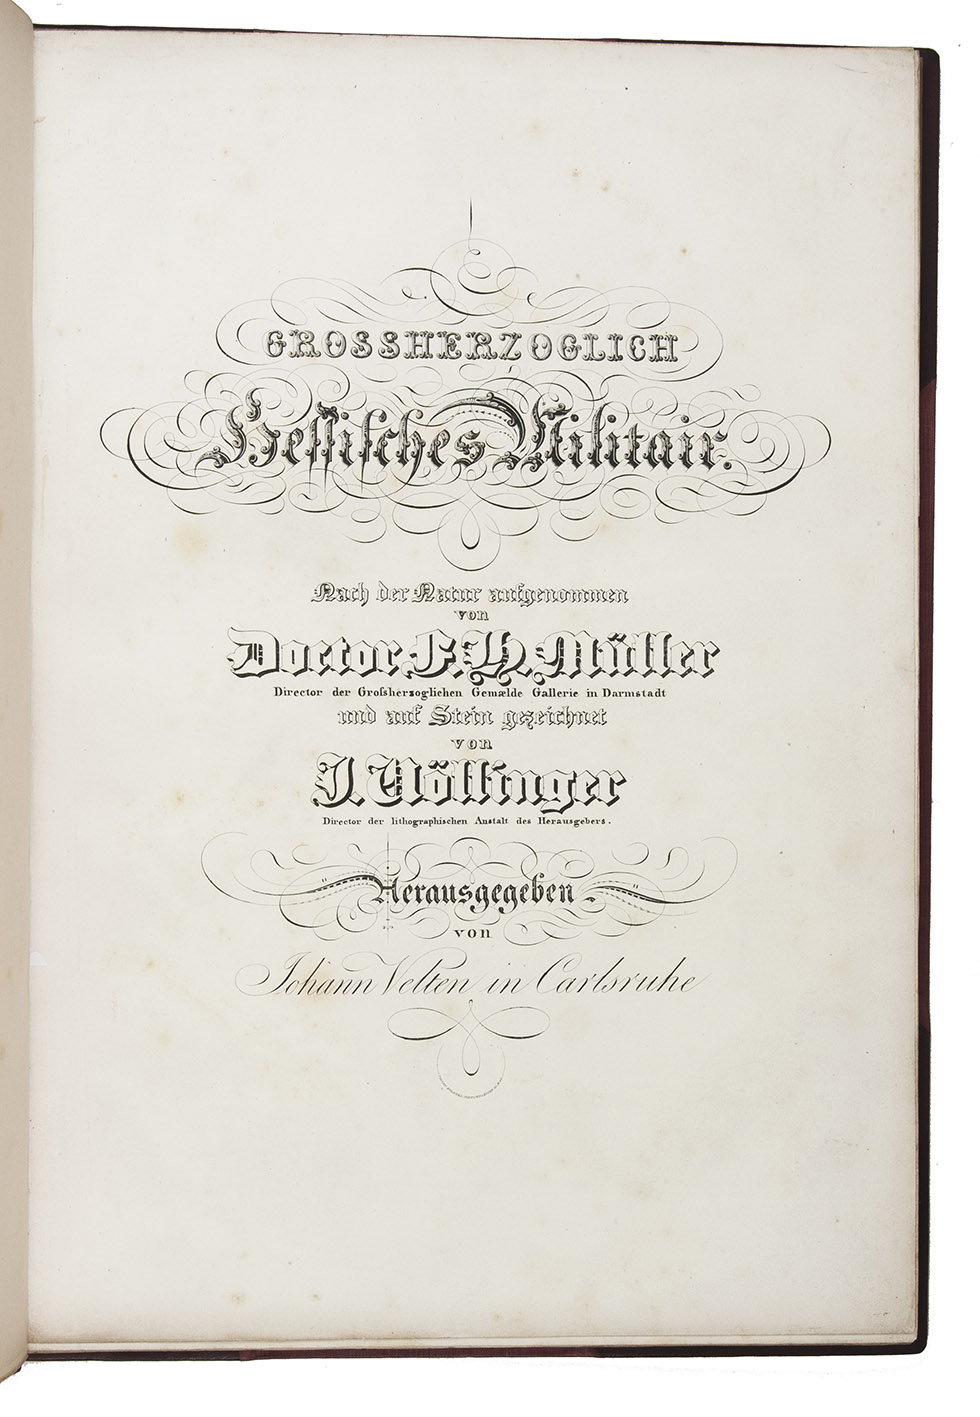 GROSSHERZOGLICH
Heſſiſches Militair.
Nach der Natur aufgenommen
von
Doctor F. H. Müller
Director der Groſsherzoglichen Gemælde Gallerie in Darmstadt
und auf Stein gezeichnet
von
J. Nöllinger
Director der lithographischen Anstalt des Herausgebers.
Herausgegeben
von
Johann Velten in Carlsruhe